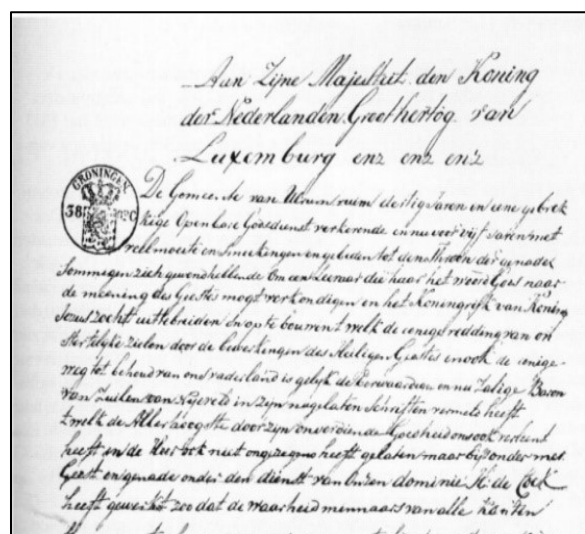 Aan Zijne Majesteit den Koning
der Nederlanden Groothertog van
Luxemburg enz enz enz
GRONINGEN
38
De Gemeente van Ulrum ruim dertig Jaren en eene gebrek
kige Openbare Godsdienst verkerende en nu voor vijf Jaren met
veel moeite en smeekingen en gebeden tot den Throon der genade
Sommegen zich gewend hellende om een Leeraar die haar het woord Gods naar
de meening des Geestes mogt verkondigen en het Koningrijk van Koning
Jezus zocht uittebreiden en op te bouwen t welk de eenige redding van on
sterfelyke zielen door de bewerkingen des Heiligen Geestes en ook de eenige
weg tot behoud van ons vaderland is gelyk de Eerwaardige en nu Zalige Baron
van Zuilen van Nijeveld in zijn nagelaten Schriften vermeld heeft
t welk de Allerhoogste door zijn onverdiende Goedheid ons ook verleent
heeft en de Heer ook niet ongezegend heeft gelaten maar bijzonder met
Geest en genade onder den dienst van onzen dominie H. de Cock
heeft gewerkt zoo dat de waarheid minnaars van alle kanten